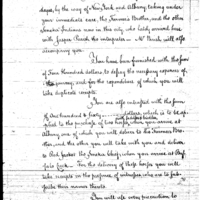 days, by the way of New York and Albany, taking under
your immediate care, the Farmers Brother, and the other
Seneka Indians now in this city, who lately arrived here
with Jasper Parish the interpreter — Mr Parish will also
accompany you.
You have been furnished with the sum
of Four Hundred dollars, to defray the necessary expenses of
the journey, and for the expenditure of which you will
take duplicate receipts.
You are also entrusted with the sum
of One hundred &
dollars, which is to be ap
plied to the purchase of two horses, when you arrive at
Albany one of which you will deliver to the Farmers Bro
ther, and the other you will take with you and deliver
to Red Jacket the Seneka Chief, when you arrive at Buf
. For the delivery of these horses you will
take receipts in the presence of witnesses, who are to sub
scribe their names thereto.
You will use every precaution to